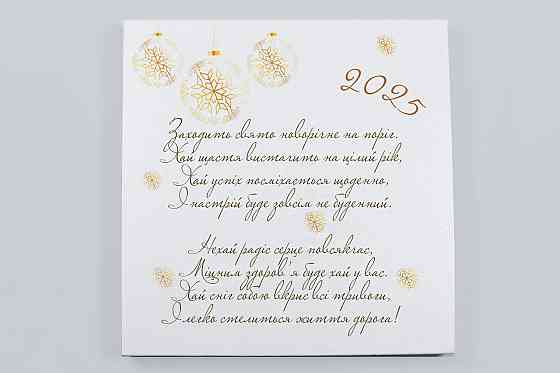 2025
Заходить свято новорічне на поріг.
Хай щастя вистачить на цілий рік,
Хай успіх посміхається щоденно,
І настрій буде зовсім не буденний.
Нехай радіє серце повсякчас,
Міцним здоров'я буде хай у вас.
Хай сніг собою вкриє всі тривоги,
І легко стелиться життя дорога!